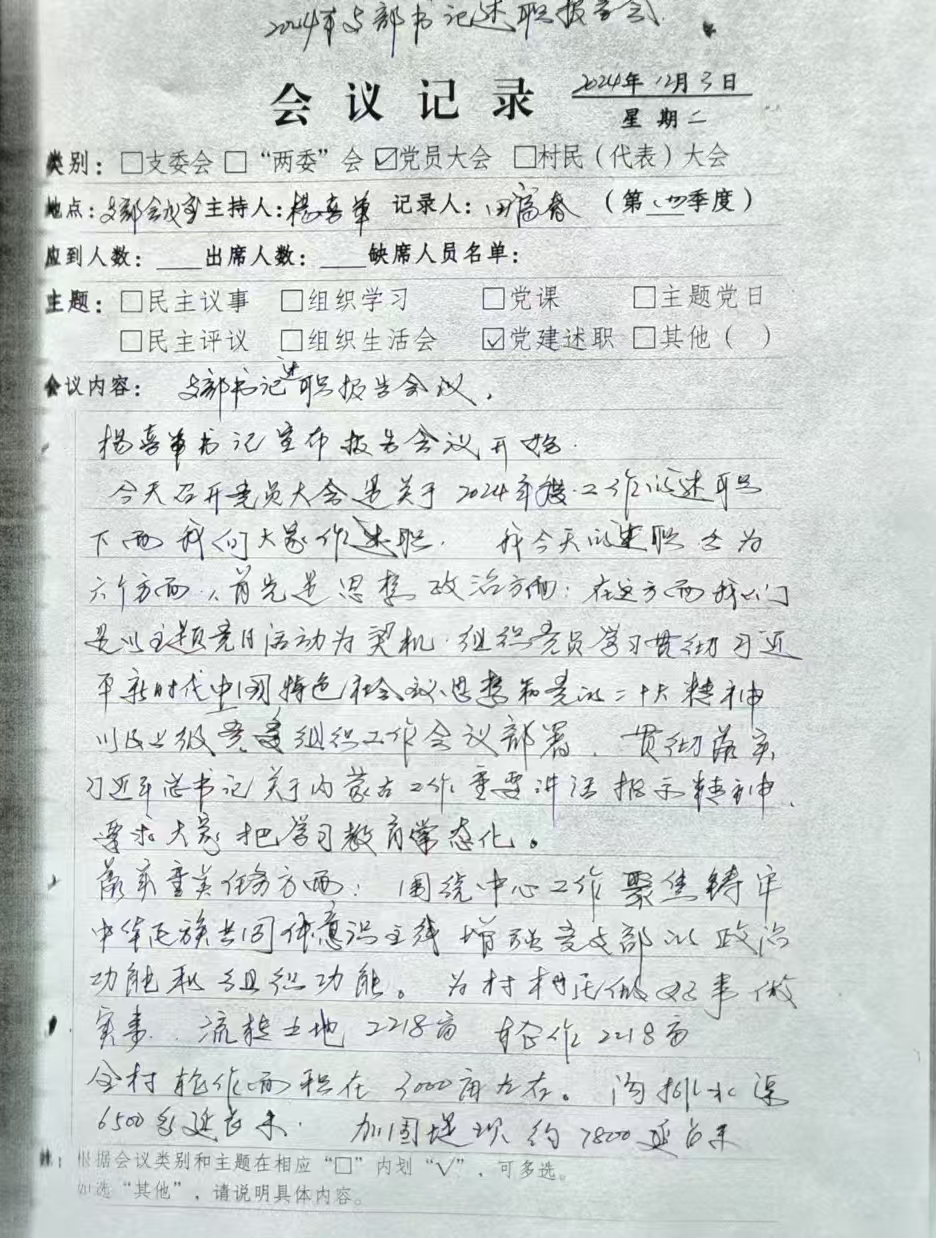 2024年支部书记述职报告会
会议记录 2024年12月3日
星期二
类别：□支委会 □“两委”会 ☑党员大会 □村民（代表）大会
地点：支部会议室 主持人：杨喜军 记录人：田富春 （第 四季度）
应到人数：____出席人数：____缺席人员名单：
主题：□民主议事 □组织学习 □党课 □主题党日
□民主评议 □组织生活会 ☑党建述职 □其他（ ）
会议内容： 支部书记述职报告会议。
杨喜军书记宣布报告会议开始.
今天召开党员大会是关于2024年度工作的述职
下面我向大家作述职. 我今天的述职分为
六个方面. 首先是思想政治方面：在这方面我们
是以主题党日活动为契机.组织党员学习贯彻习近
平新时代中国特色社会主义思想和党的二十大精神
以及上级党委组织工作会议部署. 贯彻落实
习近平总书记关于内蒙古工作重要讲话指示精神.
要求大家把学习教育常态化。
落实重要任务方面：围绕中心工作聚焦铸牢
中华民族共同体意识主线 增强党支部的政治
功能和组织功能。为村村民做好事做
实事. 流转土地2218亩 轮作2218亩
全村轮作面积在3000亩左右。沟排水渠
6500多延长米. 加固堤坝约7800延长米
根据会议类别和主题在相应“□”内划“√”，可多选。
如选“其他”，请说明具体内容。